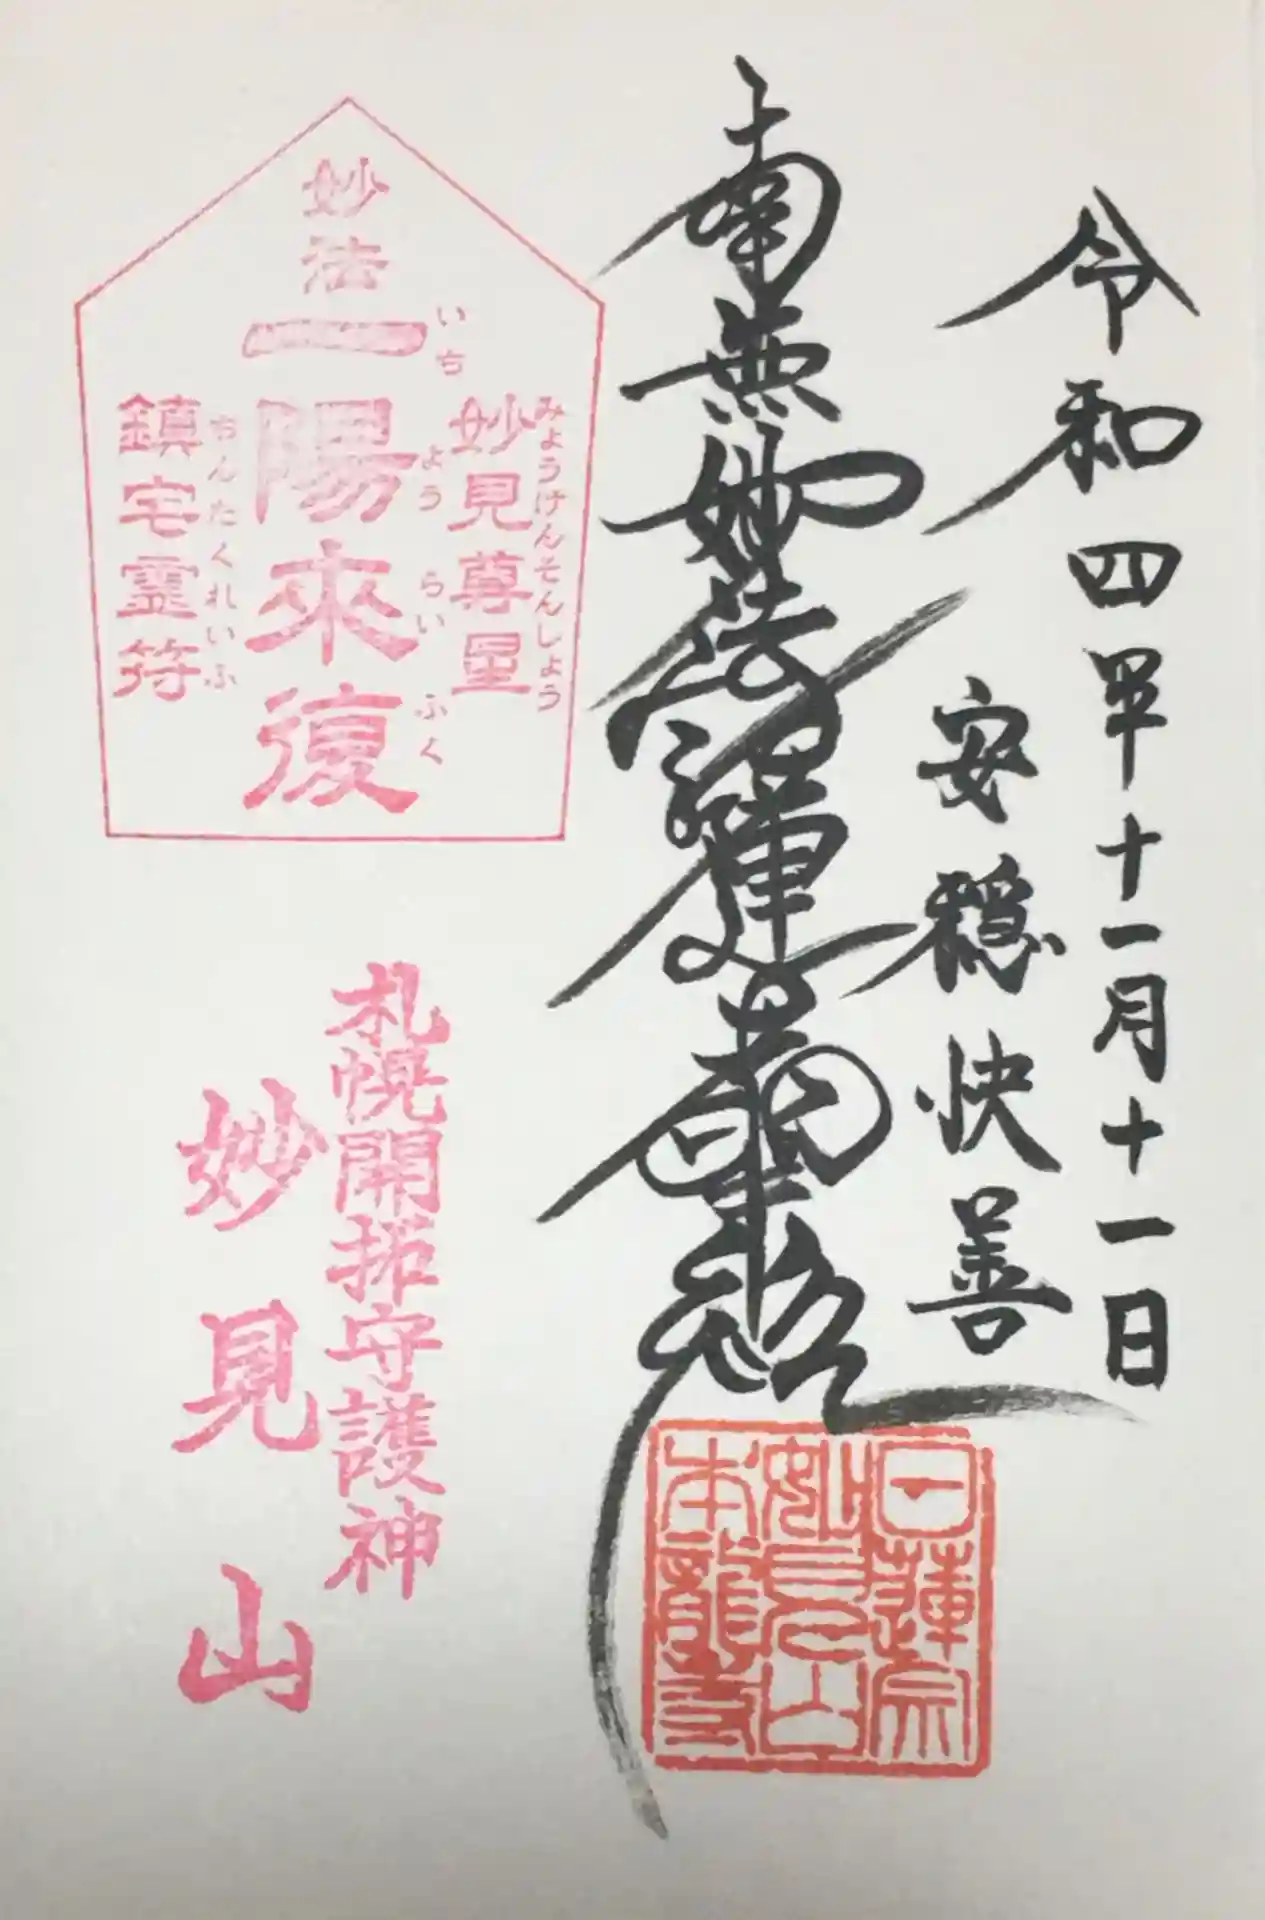 令和四年十一月十一日
安穏快善
南無妙法蓮華経
日蓮宗
妙見山
本龍寺
妙法
一陽來復
いちようらいふく
妙見尊星
みょうけんそんしょう
鎮宅霊符
ちんたくれいふ
札幌開拓守護神
妙見山